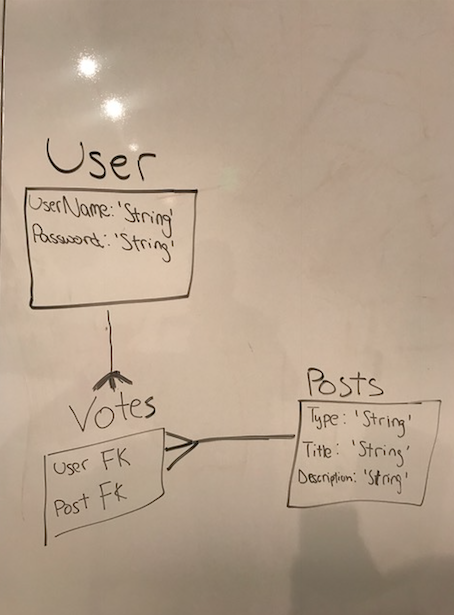 User
UserName: 'String'
Password: 'String'
Votes
User FK
Post FK
Posts
Type: 'String'
Title: 'String'
Description: 'String'